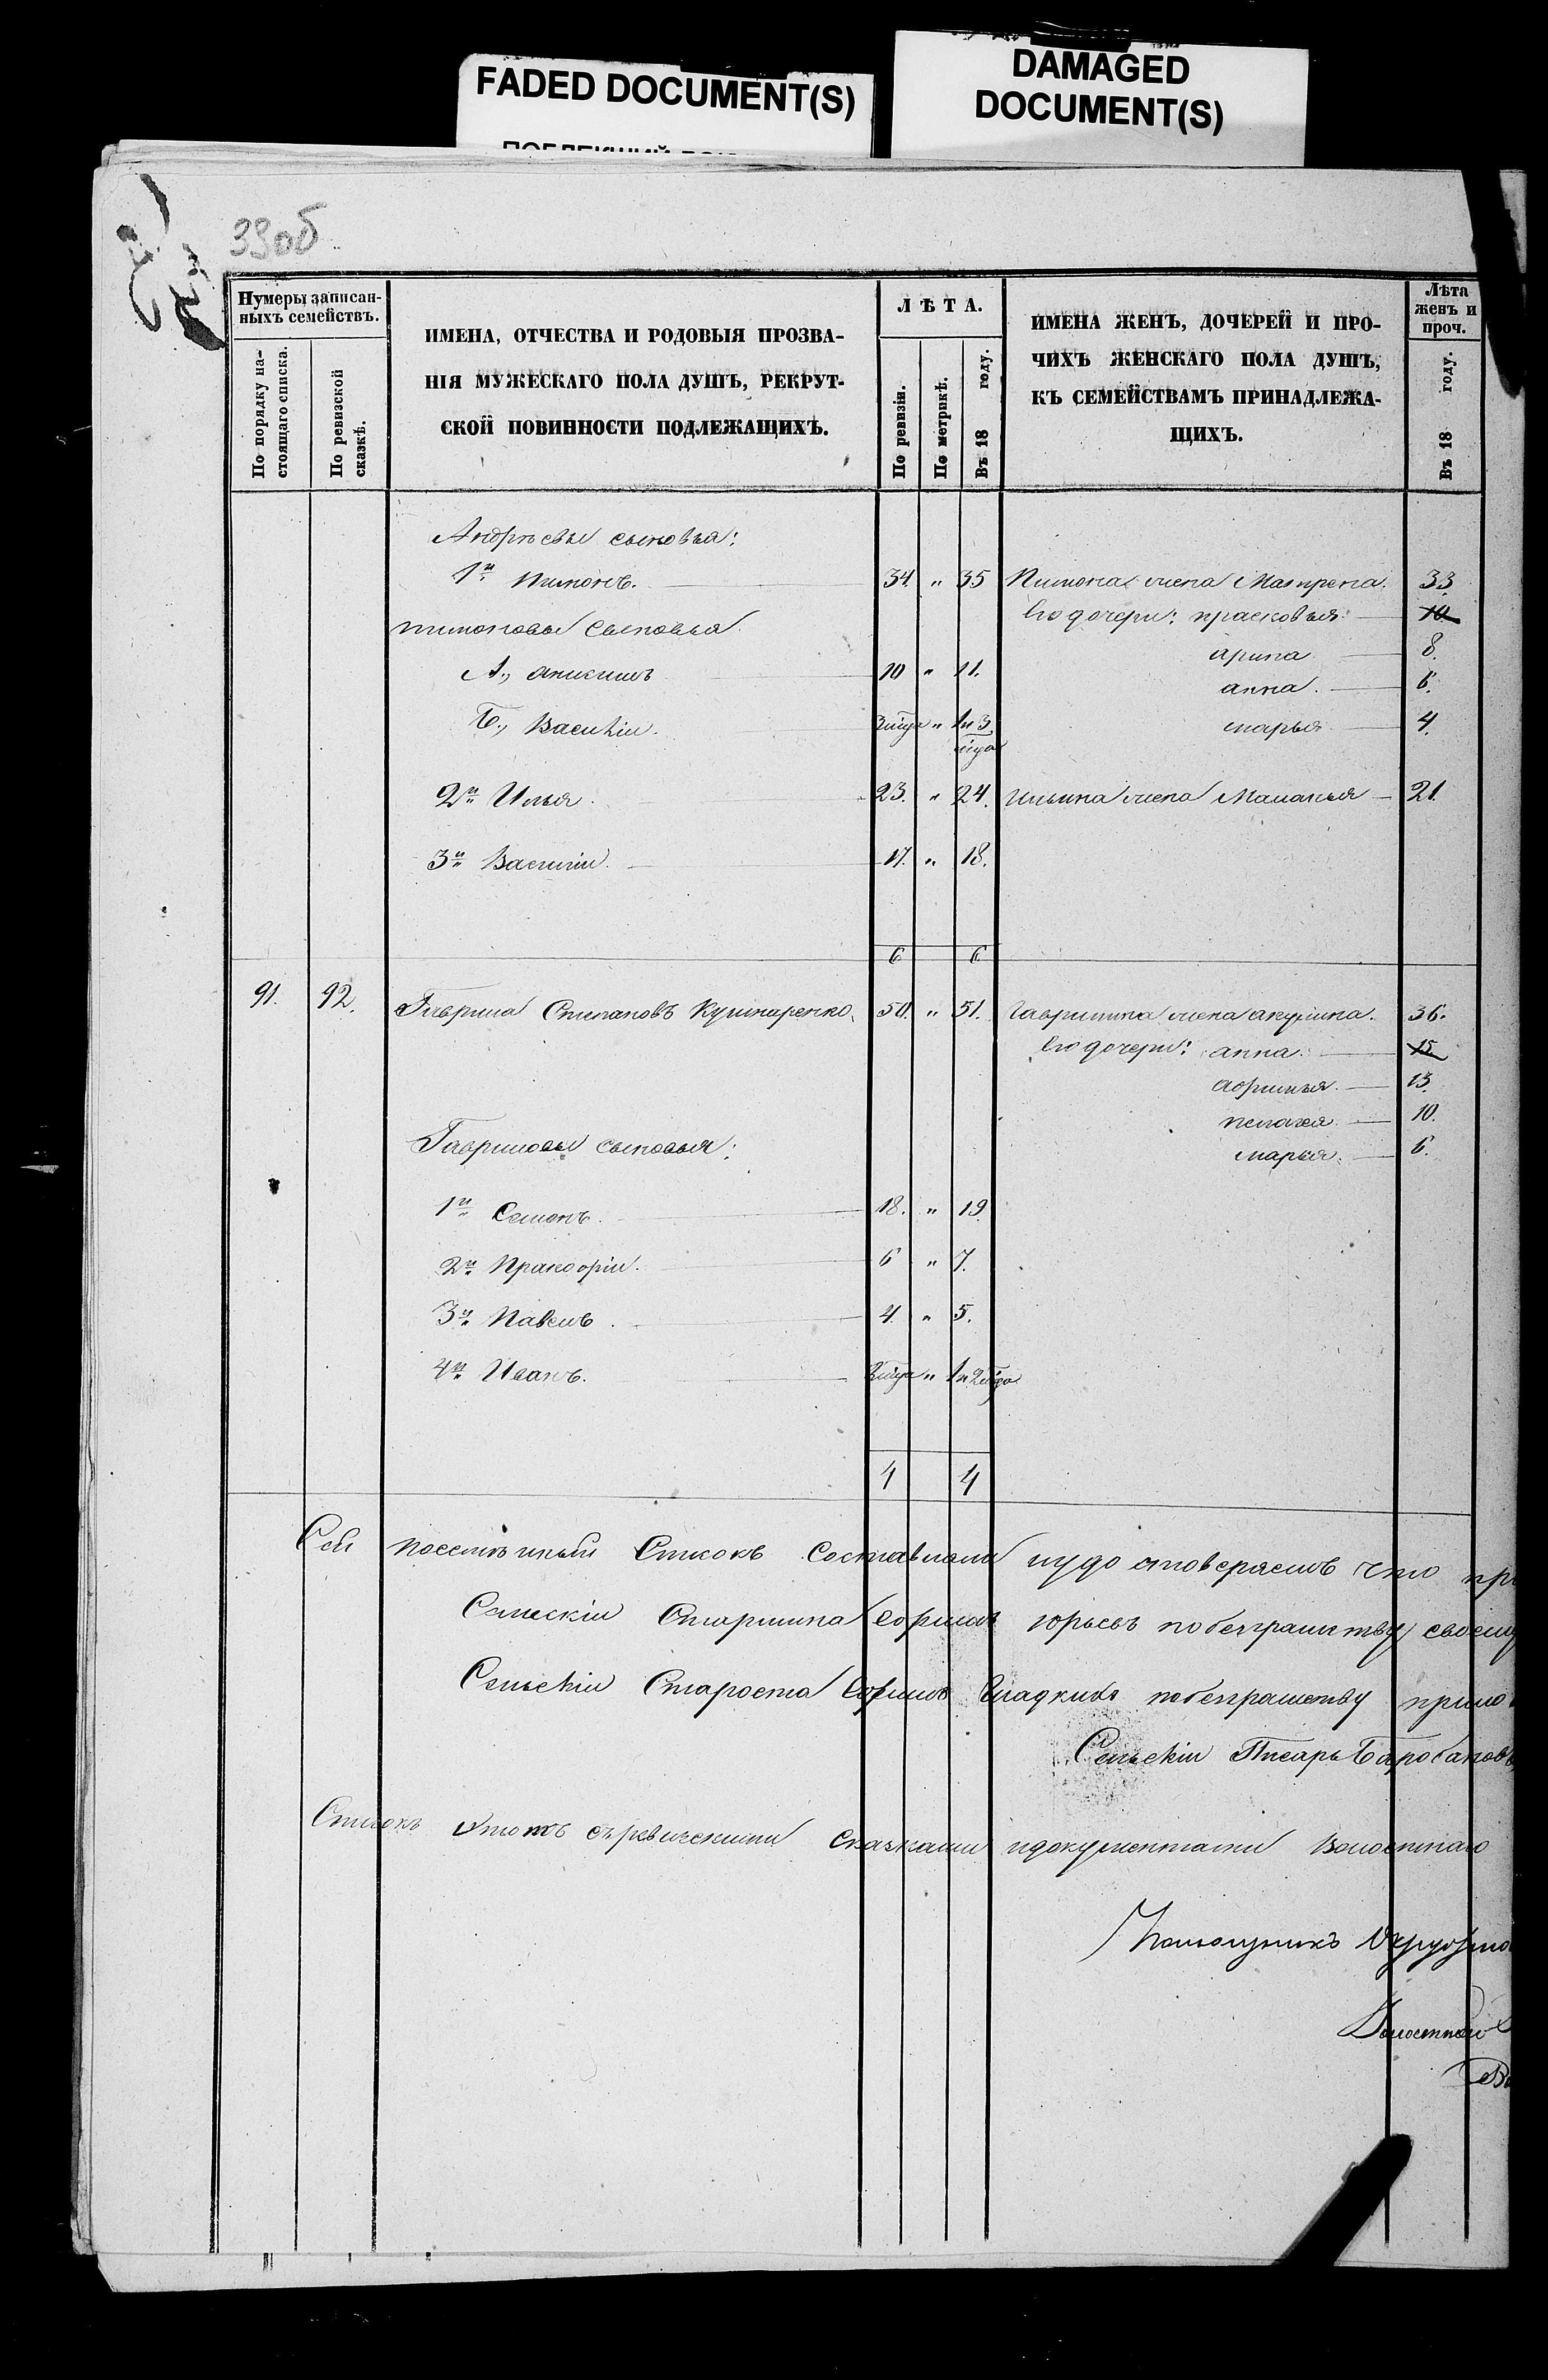 FADED DOCUMENT(S)
DAMAGED
DOCUMENT(S)
33об
Нумеры записан-
ныхъ семействъ.
По порядку на-
стоящаго списка.
По ревизской
сказкѣ.
ИМЕНА, ОТЧЕСТВА И РОДОВЫЯ ПРОЗВА-
НІЯ МУЖЕСКАГО ПОЛА ДУШЪ, РЕКРУТ-
СКОЙ ПОВИННОСТИ ПОДЛЕЖАЩИХЪ.
ЛѢТА.
По ревизіи.
По метрикѣ.
Въ 18 году.
ИМЕНА ЖЕНЪ, ДОЧЕРЕЙ И ПРО-
ЧИХЪ ЖЕНСКАГО ПОЛА ДУШЪ,
КЪ СЕМЕЙСТВАМЪ ПРИНАДЛЕЖА-
ЩИХЪ.
Лѣта
женъ и
проч.
Въ 18 году.
Андрѣевы сыновья:
1й Пимонъ. 34. " 35 Пимона жена Матрена. 33
Его дочери: прасковья 10
пимоновы Сыновья
арина 8.
А., аникимъ 10 " 11.
анна. 6.
Б., Василіи. 3 мца " 1 и 3 мца
марья 4.
2й Илья. 23. " 24. ильина жена Маланья 21.
3й Василіи. 17. " 18.
6 6
91. 92. Гаврила Степановъ Кушнаренко. 50. " 51. гаврилина жена акулина. 36.
Его дочери: анна. 15
афимья. 13.
пелагея. 10.
Гавриловы сыновья:
марья. 6.
1й Семонъ. 18. " 19
2й Пракофіи. 6 " 7.
3й Павелъ. 4. " 5.
4й Иванъ. 2 мца " 1 и 2 мца
4 4
Сей посемѣйный Списокъ Составлѣнъ иудостоверяемъ что
Селскіи Старшина Ефимъ юрьевъ побезграмтву своему
Сельскіи Староста Ефимъ Гладкихъ побезграметву
Сельскіи Писарь Барабановъ
Списокъ этотъ съ ревизскими Сказками идокументами Волостнаго
Помощникъ Окружно
Волостной